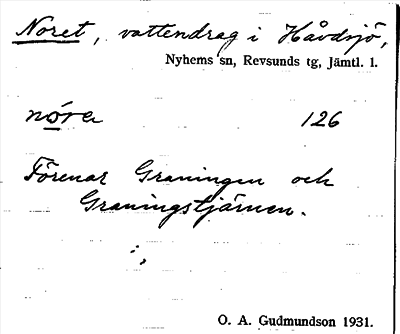 Noret, vattendrag i Håvdsjö,
Nyhems sn, Revsunds tg, Jämtl. l.
nóre 126
Förenar Graningen och
Graningstjärnen.
O. A. Gudmundson 1931.